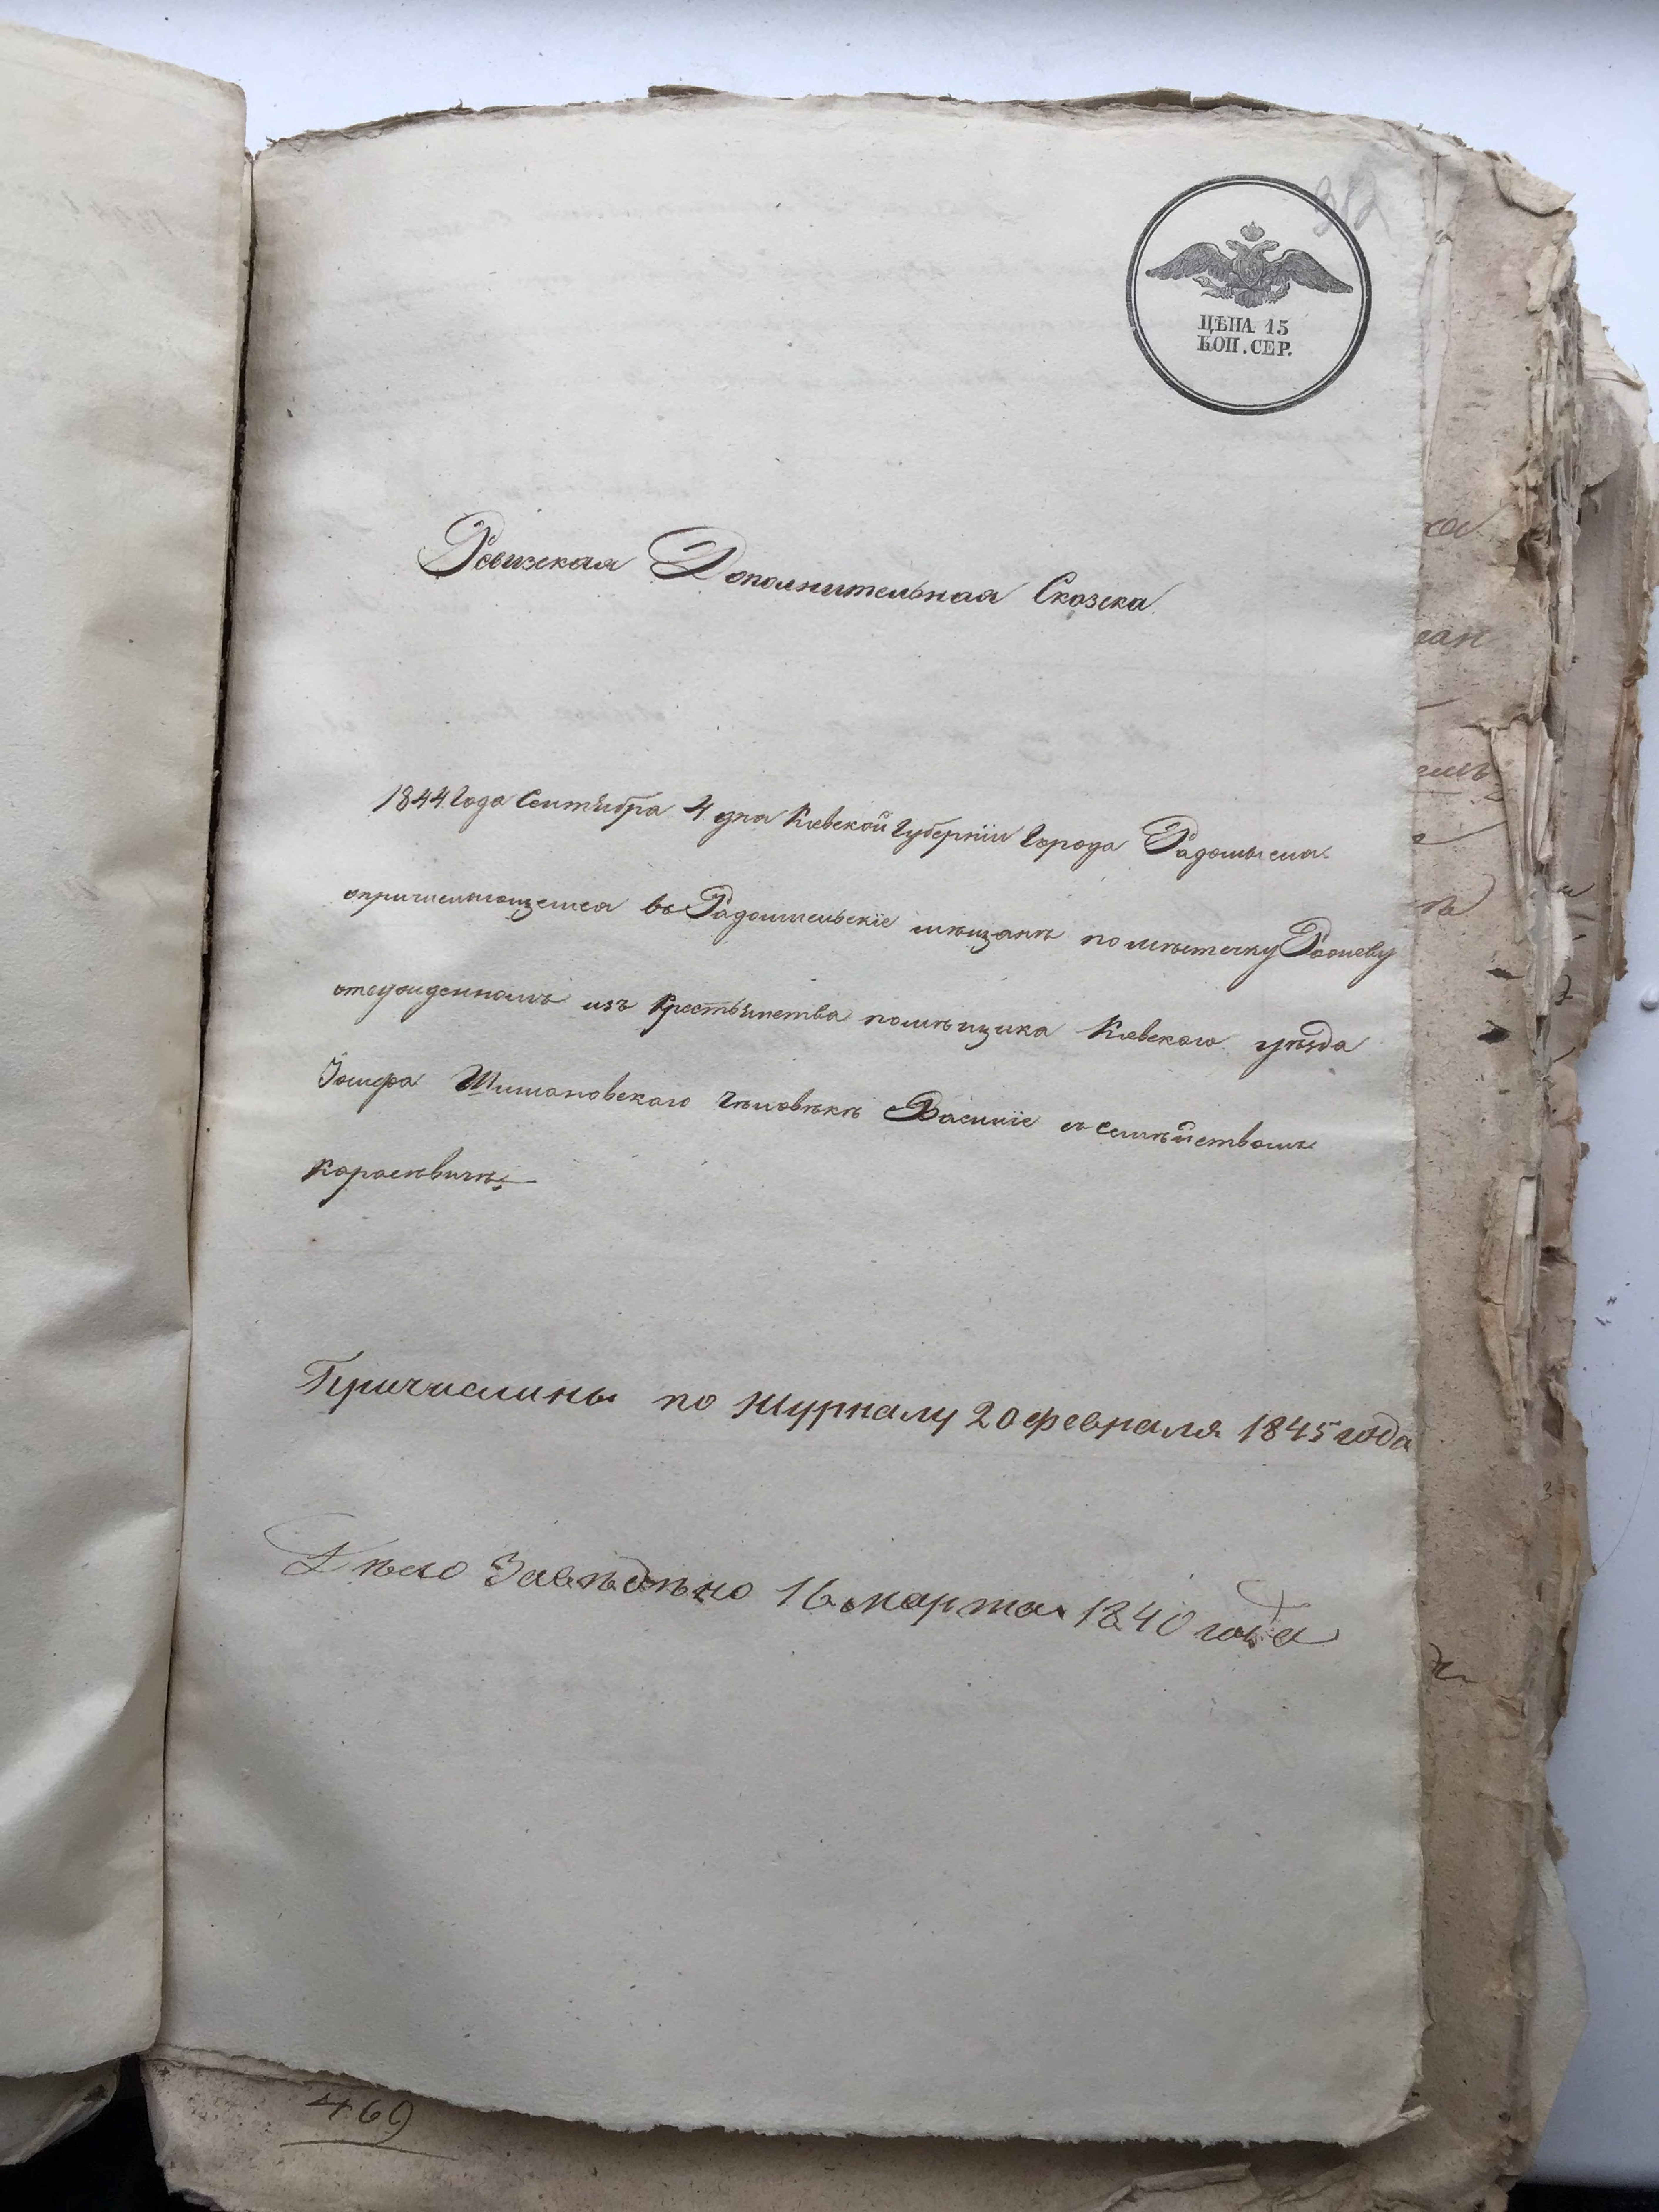 ЦѢНА 15
КОП. СЕР.
Ревизская Дополнительная Сказка
1844 Года Сентября 4 дня Киевской Губернии Города Радомысля
опричисляющемся въ Радомысльскіе мѣщанѣ по мѣстечку
изъ Крестьянства помѣщика Киевского уѣзда
Іосифа Шимановского Чѣловѣкѣ Василіе съ Семѣйствомъ
Карасѣвичѣ
Причислины по журналу 20 февраля 1845 года
Дѣло Завѣдѣно 16 марта 1840 года
469